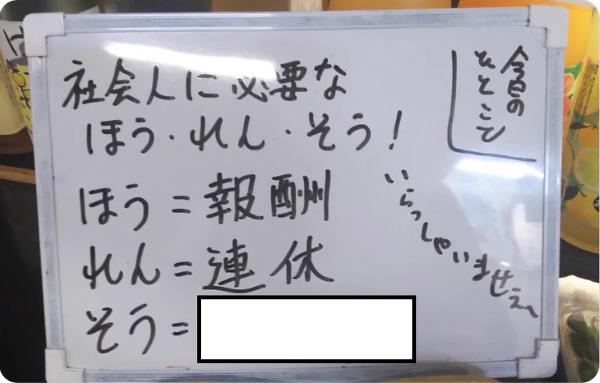 今日の
ひとこと
社会人に必要な
ほう・れん・そう！
ほう＝報酬
れん＝連休
そう＝
いらっしゃいませぇ〜